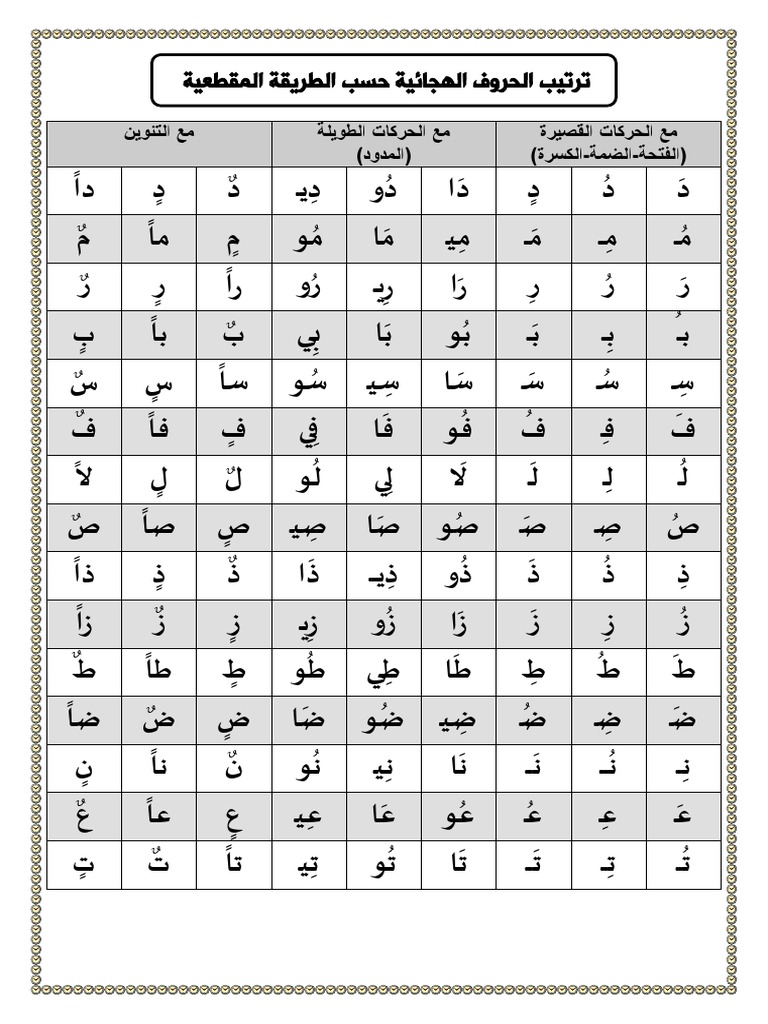 ترتيب الحروف الهجائية حسب الطريقة المقطعية
مع الحركات القصيرة
(الفتحة-الضمة-الكسرة)
مع الحركات الطويلة
(المدود)
مع التنوين
دَ دُ دٍ دَا دُو دِيـ دٌ دٍ داً
مُـ مِـ مَـ مِيـ مَا مُو مٍ ماً مٌ
رَ رُ رِ رَا رِيـ رُو راً رٍ رٌ
بُـ بِـ بَـ بُو بَا بِي بٌ باً بٍ
سِـ سُـ سَـ سَا سِيـ سُو ساً سٍ سٌ
فَـ فِـ فُـ فُو فَا فِي فٍ فاً فٌ
لُـ لِـ لَـ لَا لِي لُو لٌ لٍ لاً
صُ صِـ صَـ صُو صَا صِيـ صٍ صاً صٌ
ذِ ذُ ذَ ذُو ذِيـ ذَا ذٌ ذٍ ذاً
زُ زِ زَ زَا زُو زِيـ زٍ زٌ زاً
طَـ طُـ طِـ طَا طِي طُو طٍ طاً طٌ
ضَـ ضِـ ضُـ ضِيـ ضُو ضَا ضٍ ضٌ ضاً
نِـ نُـ نَـ نَا نِيـ نُو نٌ ناً نٍ
عَـ عِـ عُـ عُو عَا عِيـ عٍ عاً عٌ
تُـ تِـ تَـ تَا تُو تِيـ تاً تٌ تٍ